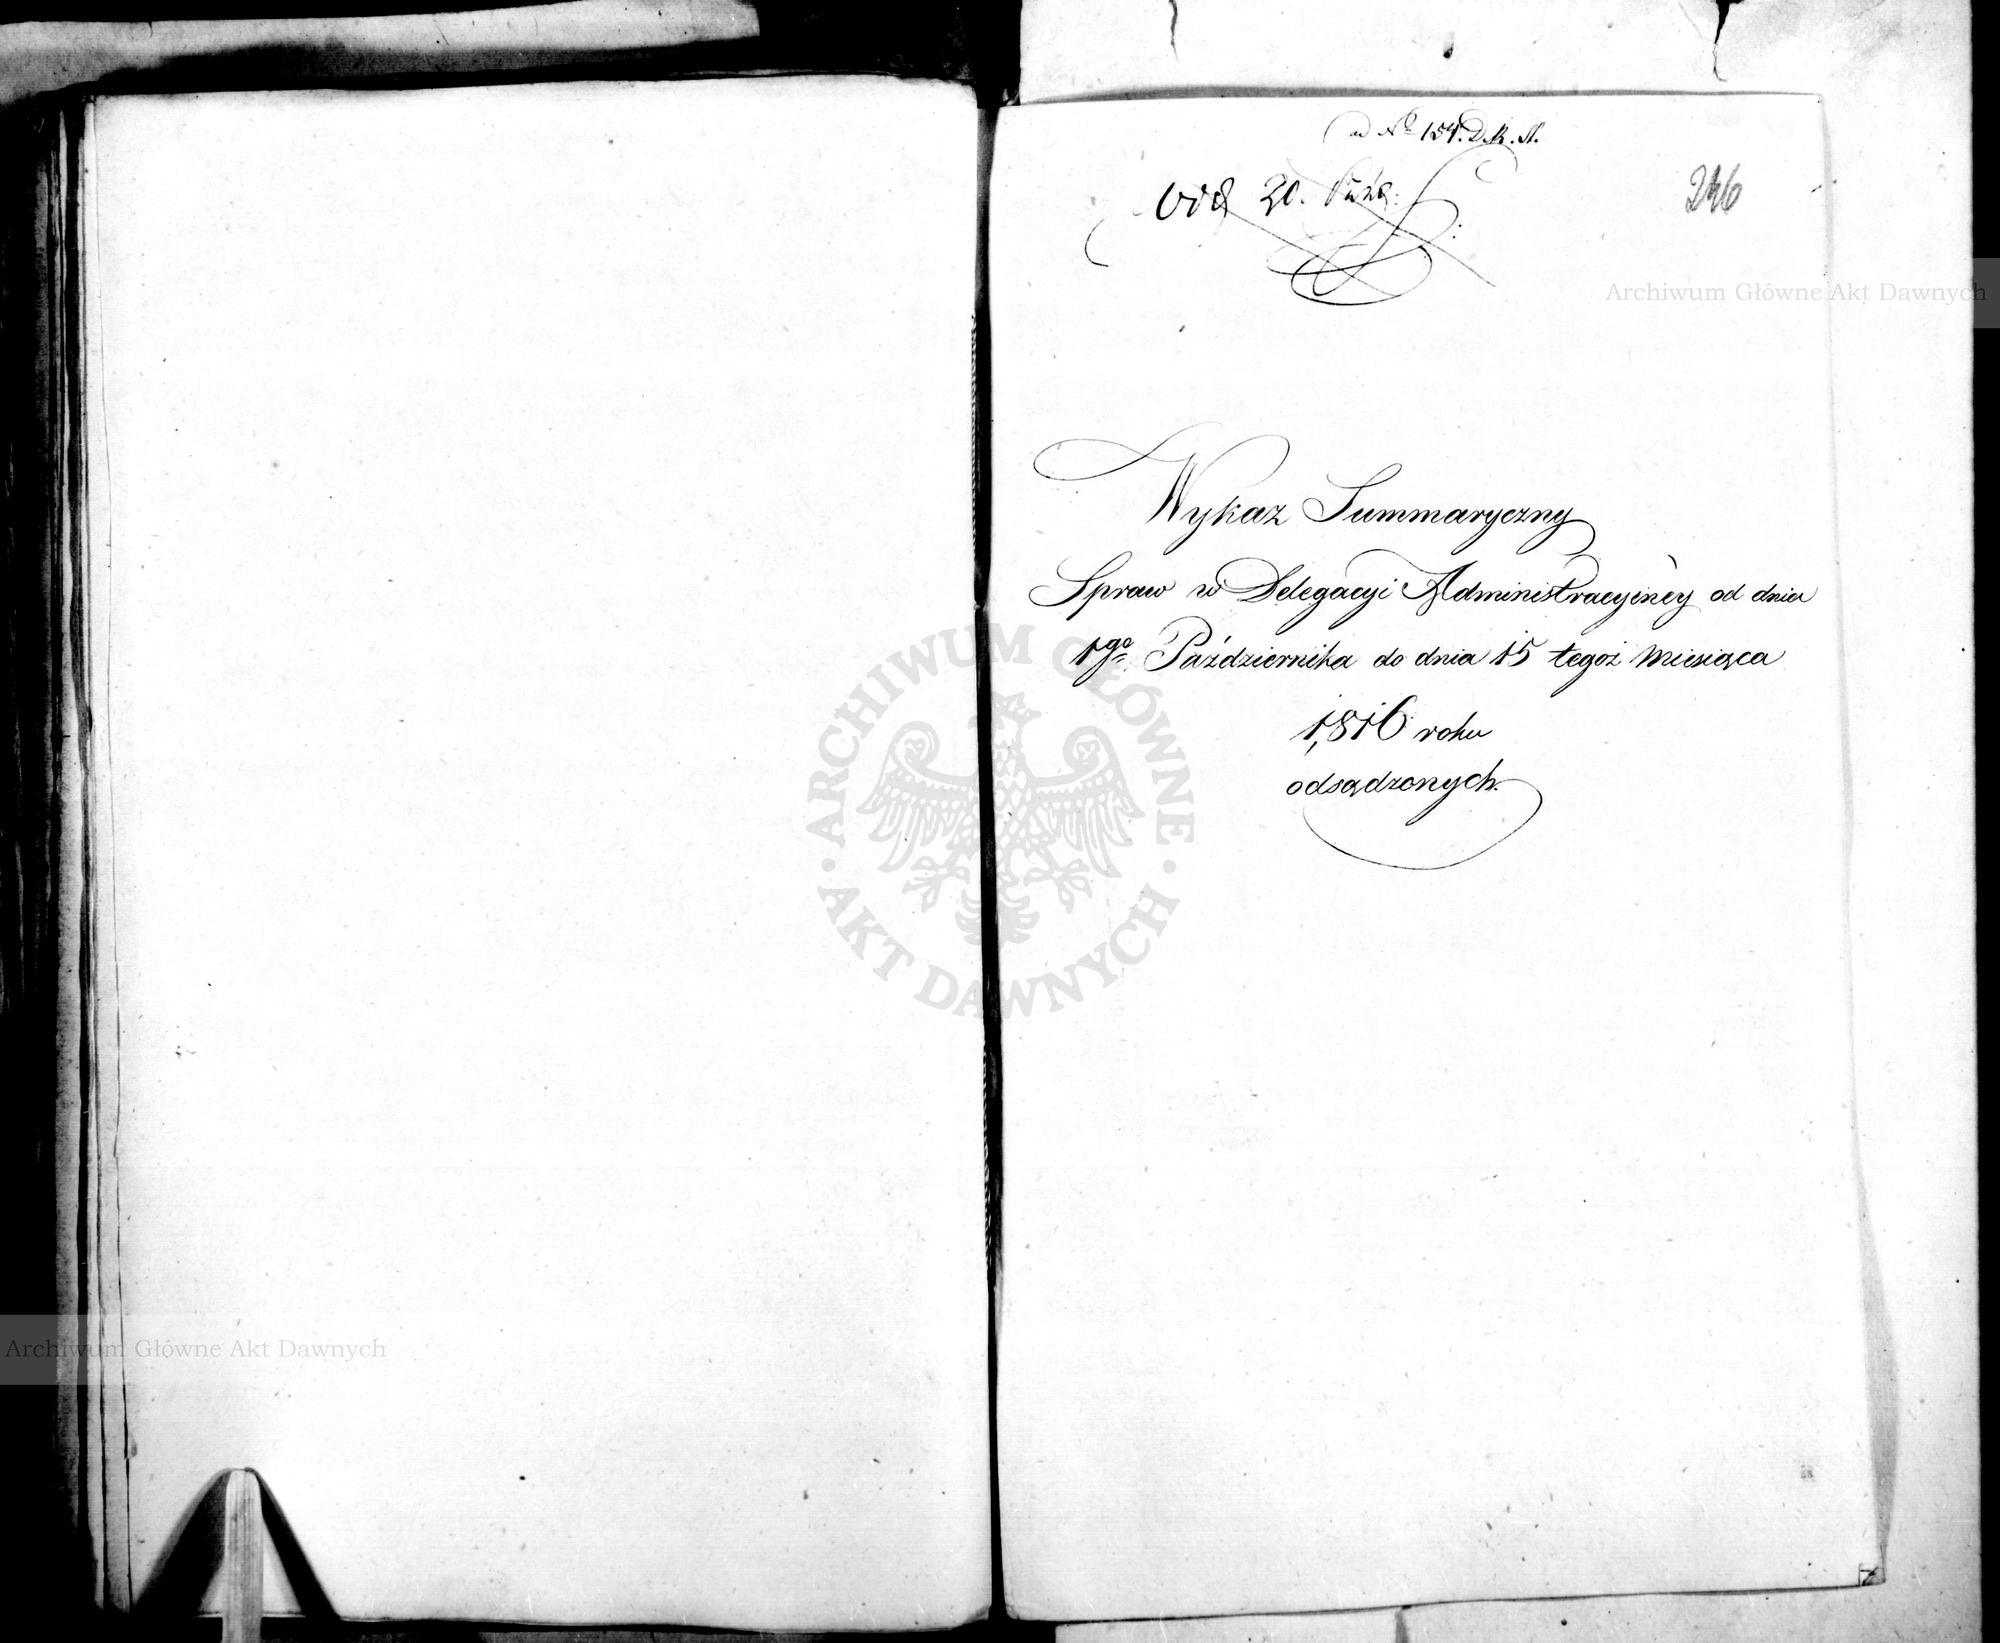 ad No 154. D.R.A.
Odd 20. Paźd:
246
Archiwum Główne Akt Dawnych
Wykaz Summaryczny
Spraw w Delegacyi Administracyiney od dnia
1go Października do dnia 15 tegoż Miesiąca
1,816 roku
odsądzonych.
ARCHIWUM GŁÓWNE
AKT DAWNYCH
Archiwum Główne Akt Dawnych